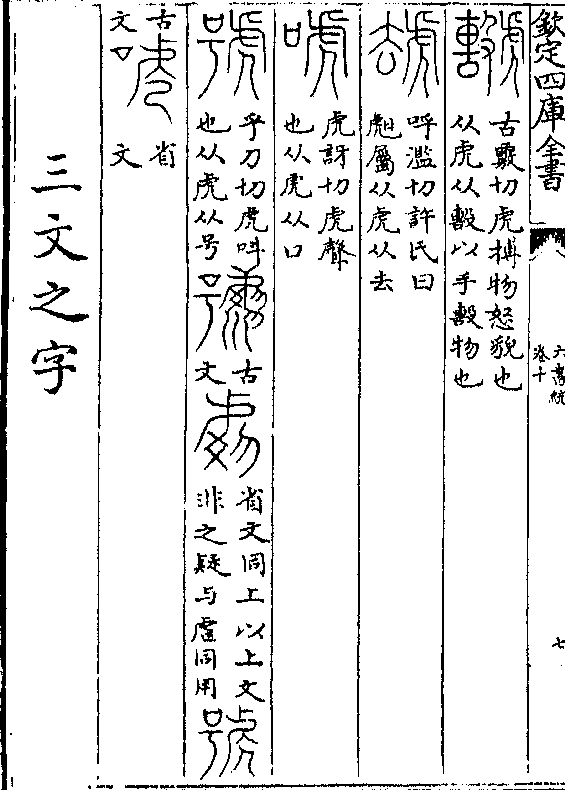 欽定四庫全書
六書統
卷十
七
古覈切虎搏物怒貌也
从虎从毄以手毄物也
呼濫切許氏曰
屬从虎从去
唬
虎訝切虎聲
也从虎从口
號
乎刀切虎呌
也从虎从号
古
文
省文同上以上文
非之疑与同用
號
古
文
省
文
三文之字